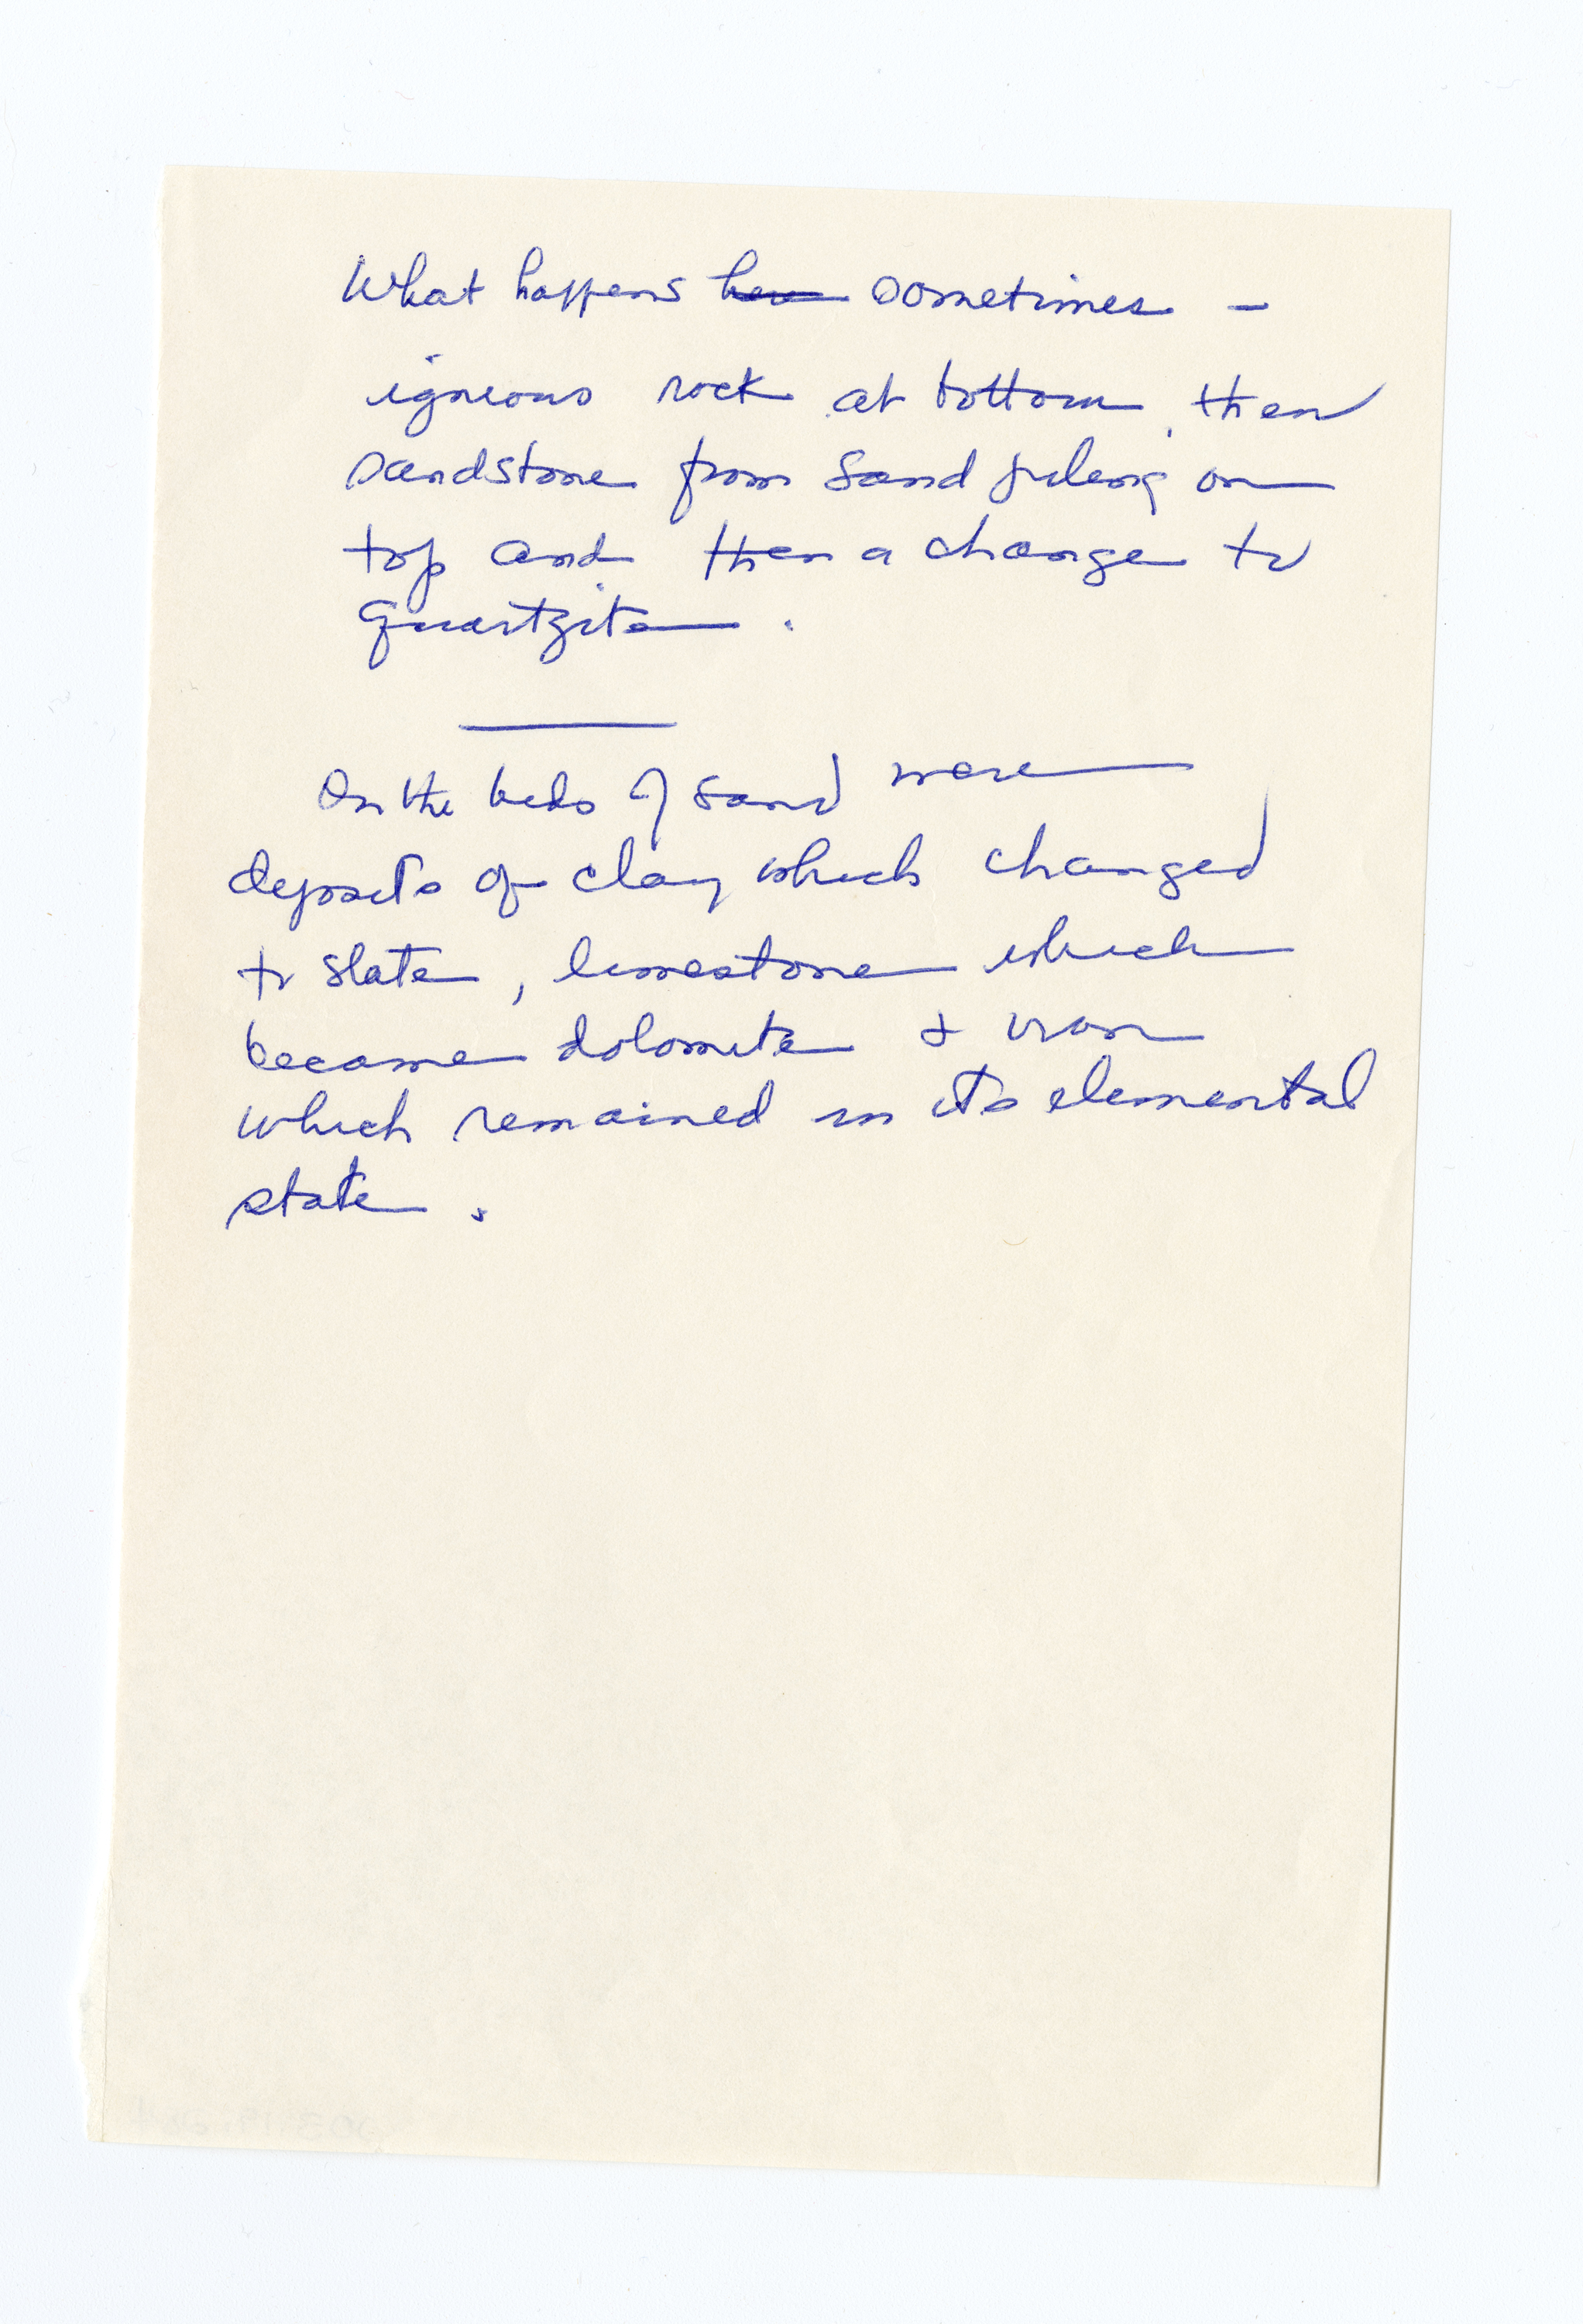 What happens here sometimes -
igneous rock at bottom, then
sandstone from sand piling on
top and then a change to
quartzite.
On the beds of sand were
deposits of clay which changed
to slate, limestone which
became dolomite & iron
which remained in its elemental
state.